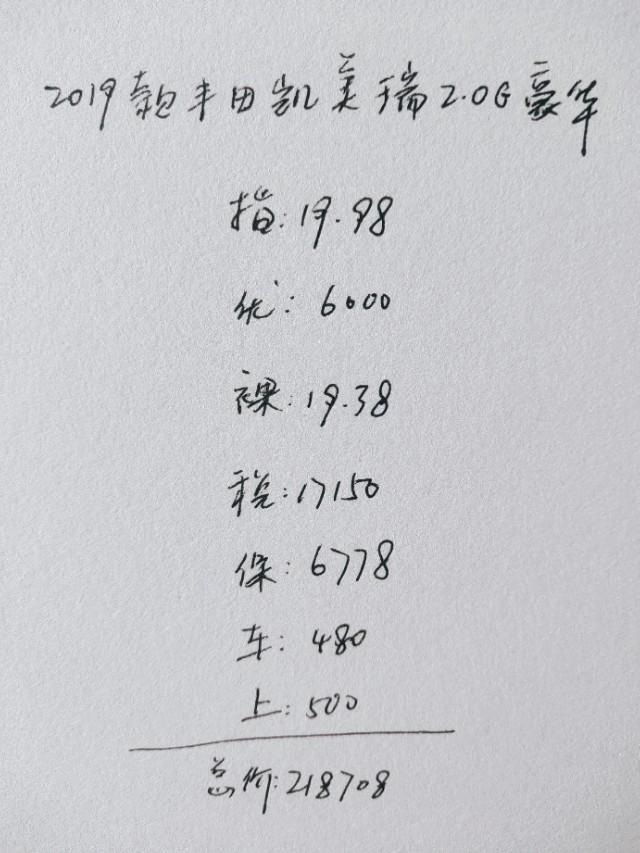 2019款丰田凯美瑞2.0G豪华
指:19.98
优:6000
裸:19.38
税:17150
保:6778
车:480
上:500
总价:218708